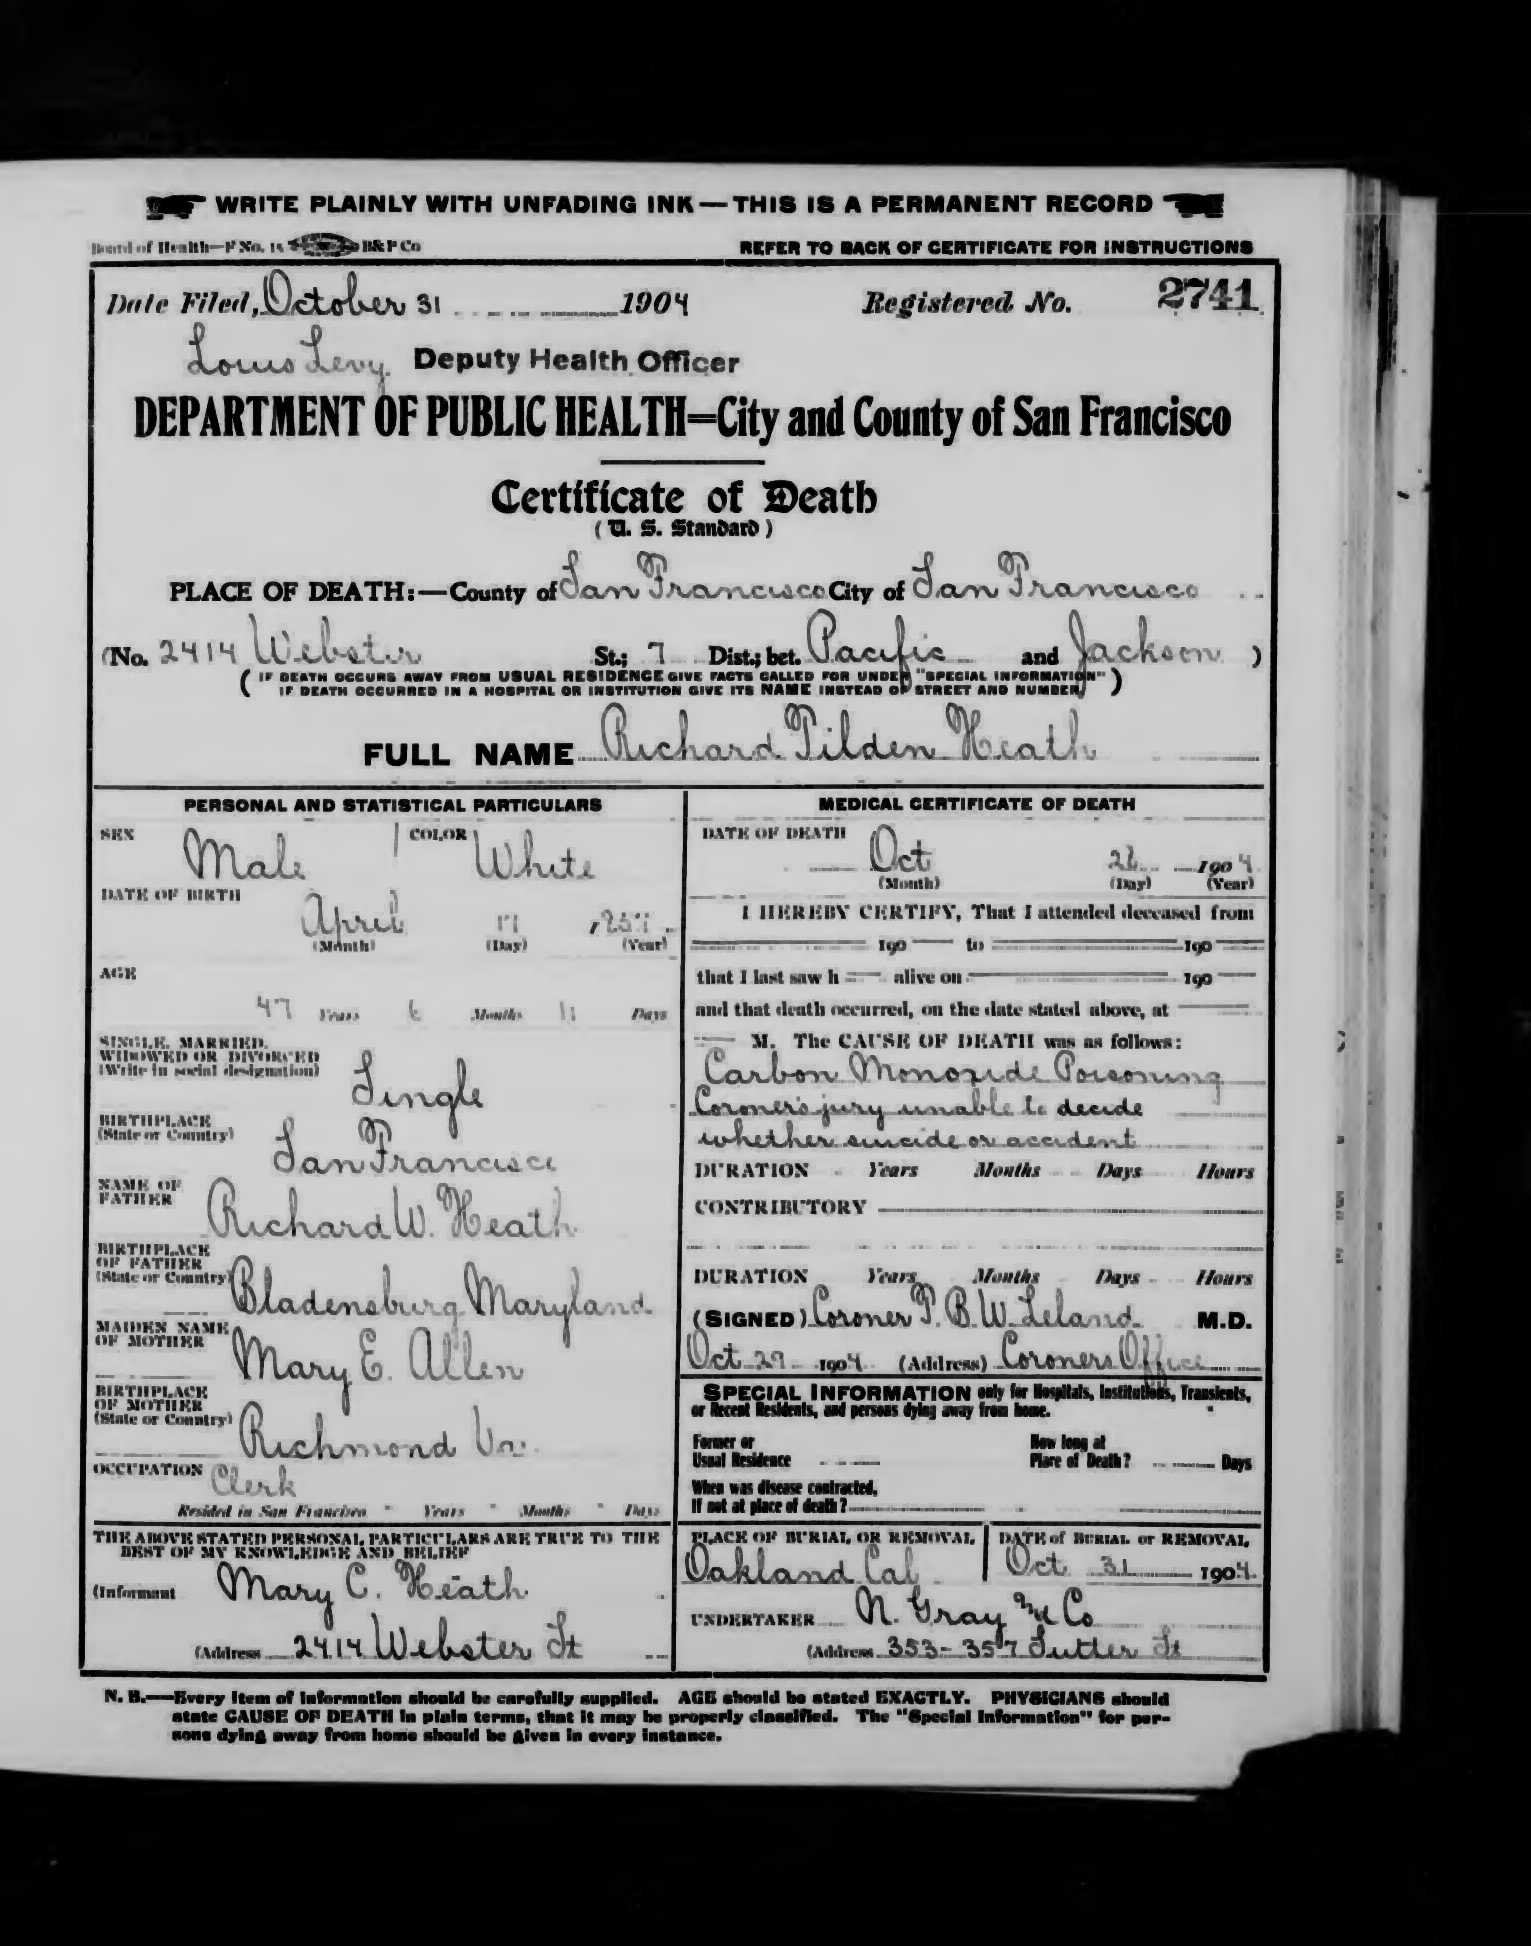 WRITE PLAINLY WITH UNFADING INK—THIS IS A PERMANENT RECORD
Board of Health—F No. 15 B&P Co
REFER TO BACK OF CERTIFICATE FOR INSTRUCTIONS
Date Filed, October 31 1904 Registered No. 2741
Louis Levy Deputy Health Officer
DEPARTMENT OF PUBLIC HEALTH=City and County of San Francisco
Certificate of Death
(U. S. Standard)
PLACE OF DEATH:—County of San Francisco City of San Francisco
(No. 2414 Webster St.; 7 Dist.; bet. Pacific and Jackson )
( IF DEATH OCCURS AWAY FROM USUAL RESIDENCE GIVE FACTS CALLED FOR UNDER "SPECIAL INFORMATION"
IF DEATH OCCURRED IN A HOSPITAL OR INSTITUTION GIVE ITS NAME INSTEAD OF STREET AND NUMBER )
FULL NAME Richard Tilden Heath
PERSONAL AND STATISTICAL PARTICULARS
SEX Male COLOR White
DATE OF BIRTH
April 17 1857
(Month) (Day) (Year)
AGE
47 Years 6 Months 11 Days
SINGLE, MARRIED,
WIDOWED OR DIVORCED
(Write in social designation)
Single
BIRTHPLACE
(State or Country)
San Francisco
NAME OF
FATHER
Richard W. Heath
BIRTHPLACE
OF FATHER
(State or Country)
Bladensburg Maryland
MAIDEN NAME
OF MOTHER
Mary E. Allen
BIRTHPLACE
OF MOTHER
(State or Country)
Richmond Va.
OCCUPATION Clerk
Resided in San Francisco " Years " Months " Days
THE ABOVE STATED PERSONAL PARTICULARS ARE TRUE TO THE
BEST OF MY KNOWLEDGE AND BELIEF
(Informant Mary C. Heath
(Address 2414 Webster St
MEDICAL CERTIFICATE OF DEATH
DATE OF DEATH
Oct 28 1904
(Month) (Day) (Year)
I HEREBY CERTIFY, That I attended deceased from
190 to 190
that I last saw h alive on 190
and that death occurred, on the date stated above, at
M. The CAUSE OF DEATH was as follows:
Carbon Monoxide Poisoning
Coroner's jury unable to decide
whether suicide or accident
DURATION Years Months Days Hours
CONTRIBUTORY
DURATION Years Months Days Hours
(SIGNED) Coroner T. B. W. Leland M.D.
Oct 29 1904 (Address) Coroners Office
SPECIAL INFORMATION only for Hospitals, Institutions, Transients,
or Recent Residents, and persons dying away from home.
Former or
Usual Residence
How long at
Place of Death? Days
When was disease contracted,
If not at place of death?
PLACE OF BURIAL OR REMOVAL
Oakland Cal
DATE of BURIAL or REMOVAL
Oct 31 1904
UNDERTAKER N. Gray and Co
(Address 353-357 Sutter St
N. B.—Every item of information should be carefully supplied. AGE should be stated EXACTLY. PHYSICIANS should
state CAUSE OF DEATH in plain terms, that it may be properly classified. The "Special Information" for per-
sons dying away from home should be given in every instance.